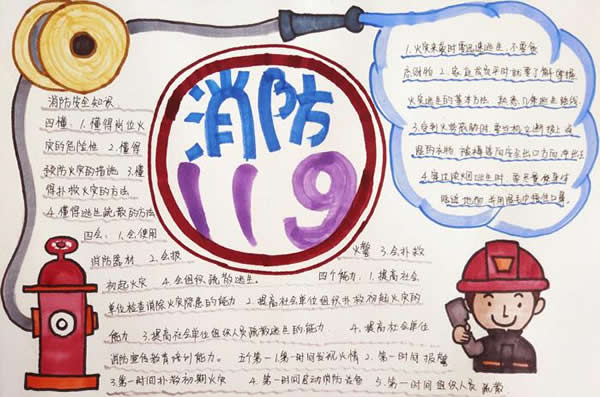 消防
119
消防安全知识
四懂:1.懂得岗位火
灾的危险性 2.懂得
预防火灾的措施 3.懂
得扑救火灾的方法
4.懂得逃生疏散的方法
四会:1.会使用
消防器材 2.会报
火警 3.会扑救
初起火灾 4.会组织疏散逃生。 四个能力:1.提高社会
单位检查消除火灾隐患的能力 2.提高社会单位组织扑救初起火灾的
能力 3.提高社会单位组织人员疏散逃生的能力 4.提高社会单位
消防宣传教育培训能力。 五个第一:1.第一时间发现火情 2.第一时间报警
3.第一时间扑救初期火灾 4.第一时间启动消防设备 5.第一时间组织人员疏散
1.火灾来袭时要迅速逃生,不要贪
恋财物 2.家庭成员平时就要了解掌握
火灾逃生的基本方法 熟悉几条逃生路线
3.受到火势威胁时要当机立断披上浸
湿的衣物 被褥等向安全出口方向冲出去
4.穿过浓烟逃生时 要尽量使身体
贴近地面 并用湿毛巾捂住口鼻